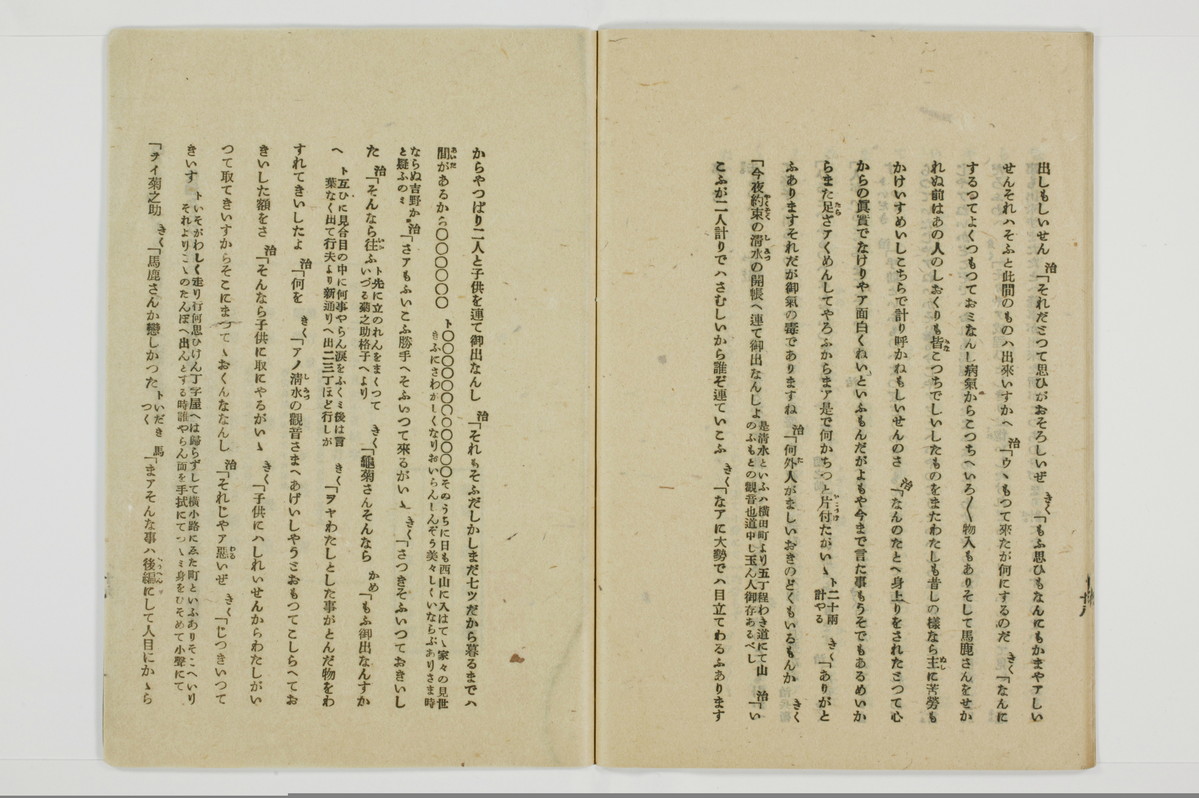 出しもしいせん 治「それだミつて思ひがおそろしいぜ きく「もふ思ひもなんにもかまやアしい
せんそれハそふと此間のものハ出來いすかへ 治「ウヽもつて来たが何にするのだ きく「なんに
するつてよくつもつておミなんし病氣からこつちへいろ〳〵物入もありそして馬鹿さんをせか
れぬ前はあの人のしおくりも皆こつちでしいしたものをまたわたしも昔しの様なら主に苦勞も
かけいすめいしこちらで計り呼かねもしいせんのさ 治「なんのたとへ身上りをされたミつて心
からの眞實でなけりやア面白くねい」といふもんだがよもや今まで言た事もうそでもあるめいか
らまた足ざアくめんしてやろふからまア是で何かちつと片付たがいヽ ト二十兩計やる きく「ありがと
ふありますそれだが御氣の毒でありますね 治「何外人がましいおきのどくもいるもんか きく
「今夜約束の淸水の開帳へ連て御出なんしよ 是淸水といふハ橫田町より五丁程わき道にて山のふもとの觀音也道中し玉ん人御存あるべし 治「い
こふが二人計りでハさむしいから誰ぞ連ていこふ きく「なアに大勢でハ目立てわるふあります
からやつぱり二人と子供を連て御出なんし 治「それもそふだしかしまだ七ツだから暮るまでハ
間があるから〇〇〇〇〇〇 ト〇〇〇〇〇〇〇〇〇〇〇そのうちに日も西山に入はてヽ家々の見世きふにさわがしくなりおいらんしんぞう美々しくいならぶありさま時
ならぬ吉野かと疑ふのミ 治「さアもふいこふ勝手へそふいつて來るがいヽ きく「さつきそふいつておきいし
た 治「そんなら徃ふ ト先に立のれんをまくつていづる菊之助格子へより きく「龜菊さんそんなら かめ「もふ御出なんすか
へ ト互ひに見合目の中に何事やらん淚をふくミ後は言葉なく出て行夫より新通りへ出二三丁ほど行しが きく「ヲヤわたしとした事がとんだ物をわ
すれてきいしたよ 治「何を きく「アノ淸水の觀音さまへあげいしやうミおもつてこしらへてお
きいした額をさ 治「そんなら子供に取にやるがいヽ きく「子供にハしれいせんからわたしがい
つて取てきいすからそこにまつてヽおくんななんし 治「それじやア惡いぜ きく「じつきいつて
きいす トいそがわしく走り行何思ひけん丁字屋へは歸らずして橫小路にゑた町といふありそこへいりそれよりこヽのたんぼへ出んとする時誰やらん面を手拭にてつヽミ身をひそめて小聲にて
「ヲイ菊之助 きく「馬鹿さんか戀しかつた トいだきつく 馬「まアそんな事ハ後編にして人目にかヽら